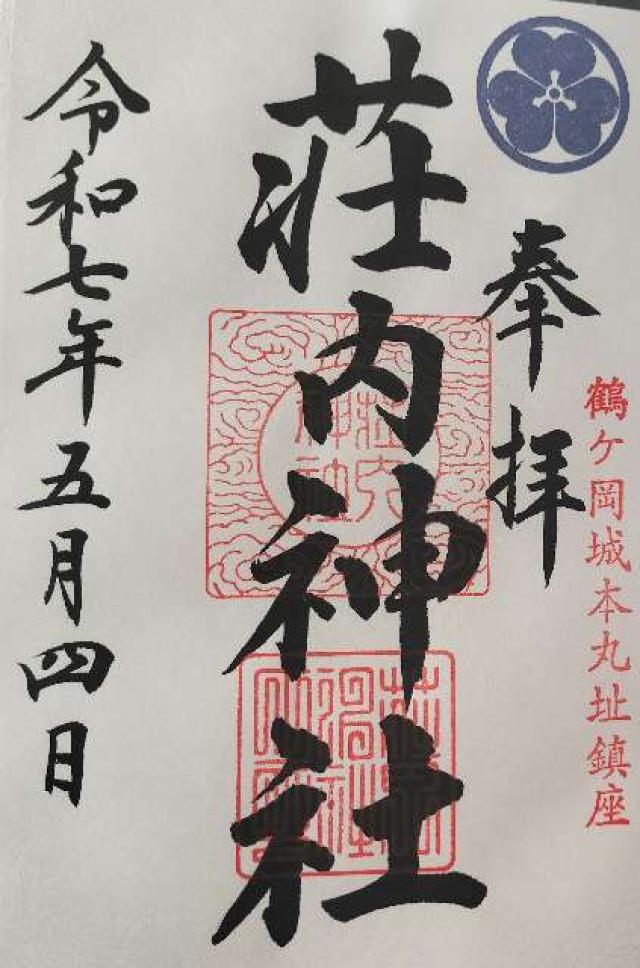 奉拝
鶴ケ岡城本丸址鎮座
荘内神社
令和七年五月四日